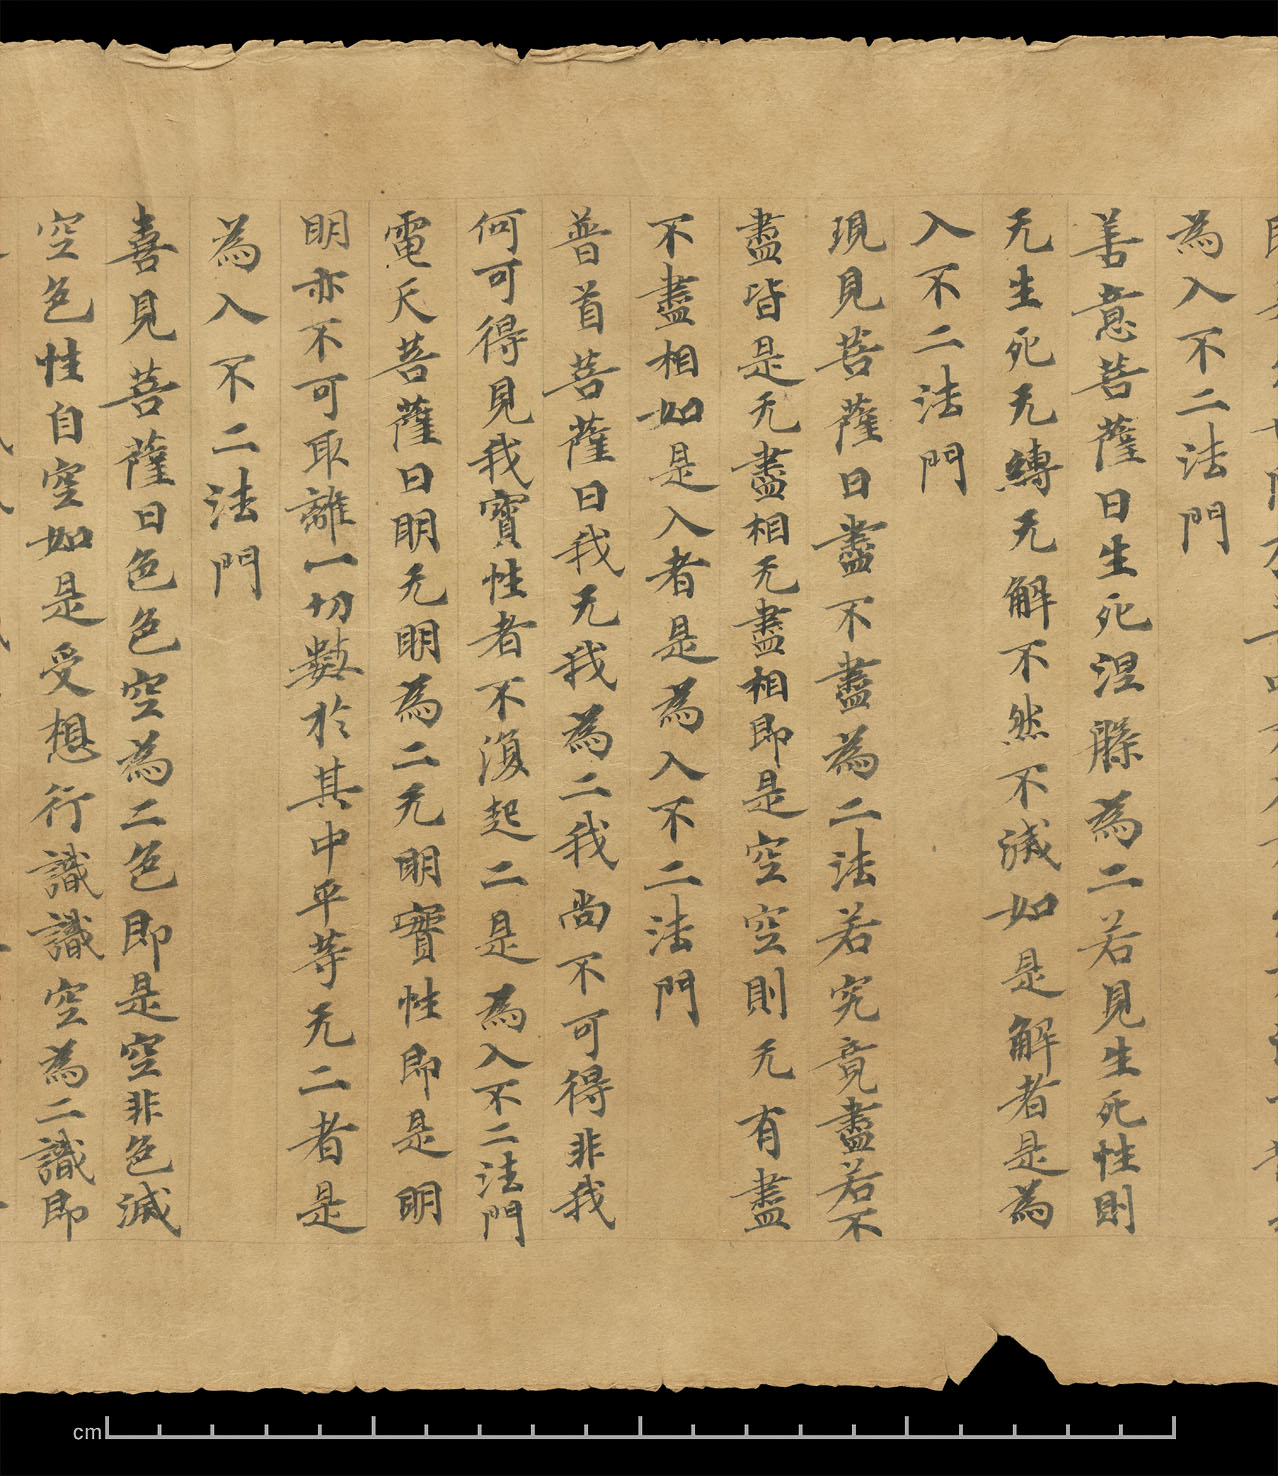 為入不二法門
善意菩薩曰生死涅槃為二若見生死性則
无生死无縛无解不然不滅如是解者是為
入不二法門
現見菩薩曰盡不盡為二法若究竟盡若不
盡皆是无盡相无盡相即是空空則无有盡
不盡相如是入者是為入不二法門
普首菩薩曰我无我為二我尚不可得非我
何可得見我實性者不復起二是為入不二法門
電天菩薩曰明无明為二无明實性即是明
明亦不可取離一切數於其中平等无二者是
為入不二法門
喜見菩薩曰色色空為二色即是空非色滅
空色性自空如是受想行識識空為二識即
cm